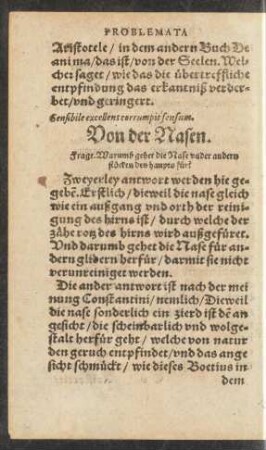 PROBLEMATA
Aristotele / in dem andern Buch De
anima / das ist / von der Seelen. Wel-
cher saget / wie das die übertreffliche
entpfindung das erkantniß verder-
bet / vnd geringert.
Sensibile excellent corrumpit sensum.
Von der Nasen.
Frage. Warumb gehet die Nase vnder andern
stöcken des haupts für?
Zweyerley antwort werden hie ge-
gebē. Erstlich / dieweil die nase gleich
wie ein außgang vnd orth der reini-
gung des hirns ist / durch welche der
zähe rotz des hirns wird außgefüret.
Vnd darumb gehet die Nase für an-
dern glidern herfür / darmit sie nicht
verunreiniget werden.
Die ander antwort ist nach der mei
nung Constantini / nemlich / Dieweil
die nase sonderlich ein zierd ist dē an
gesicht / die scheinbarlich vnd wolge-
stalt herfür geht / welche von natur
den geruch entpfindet / vnd das ange
sicht schmückt / wie dieses Boetius in
dem